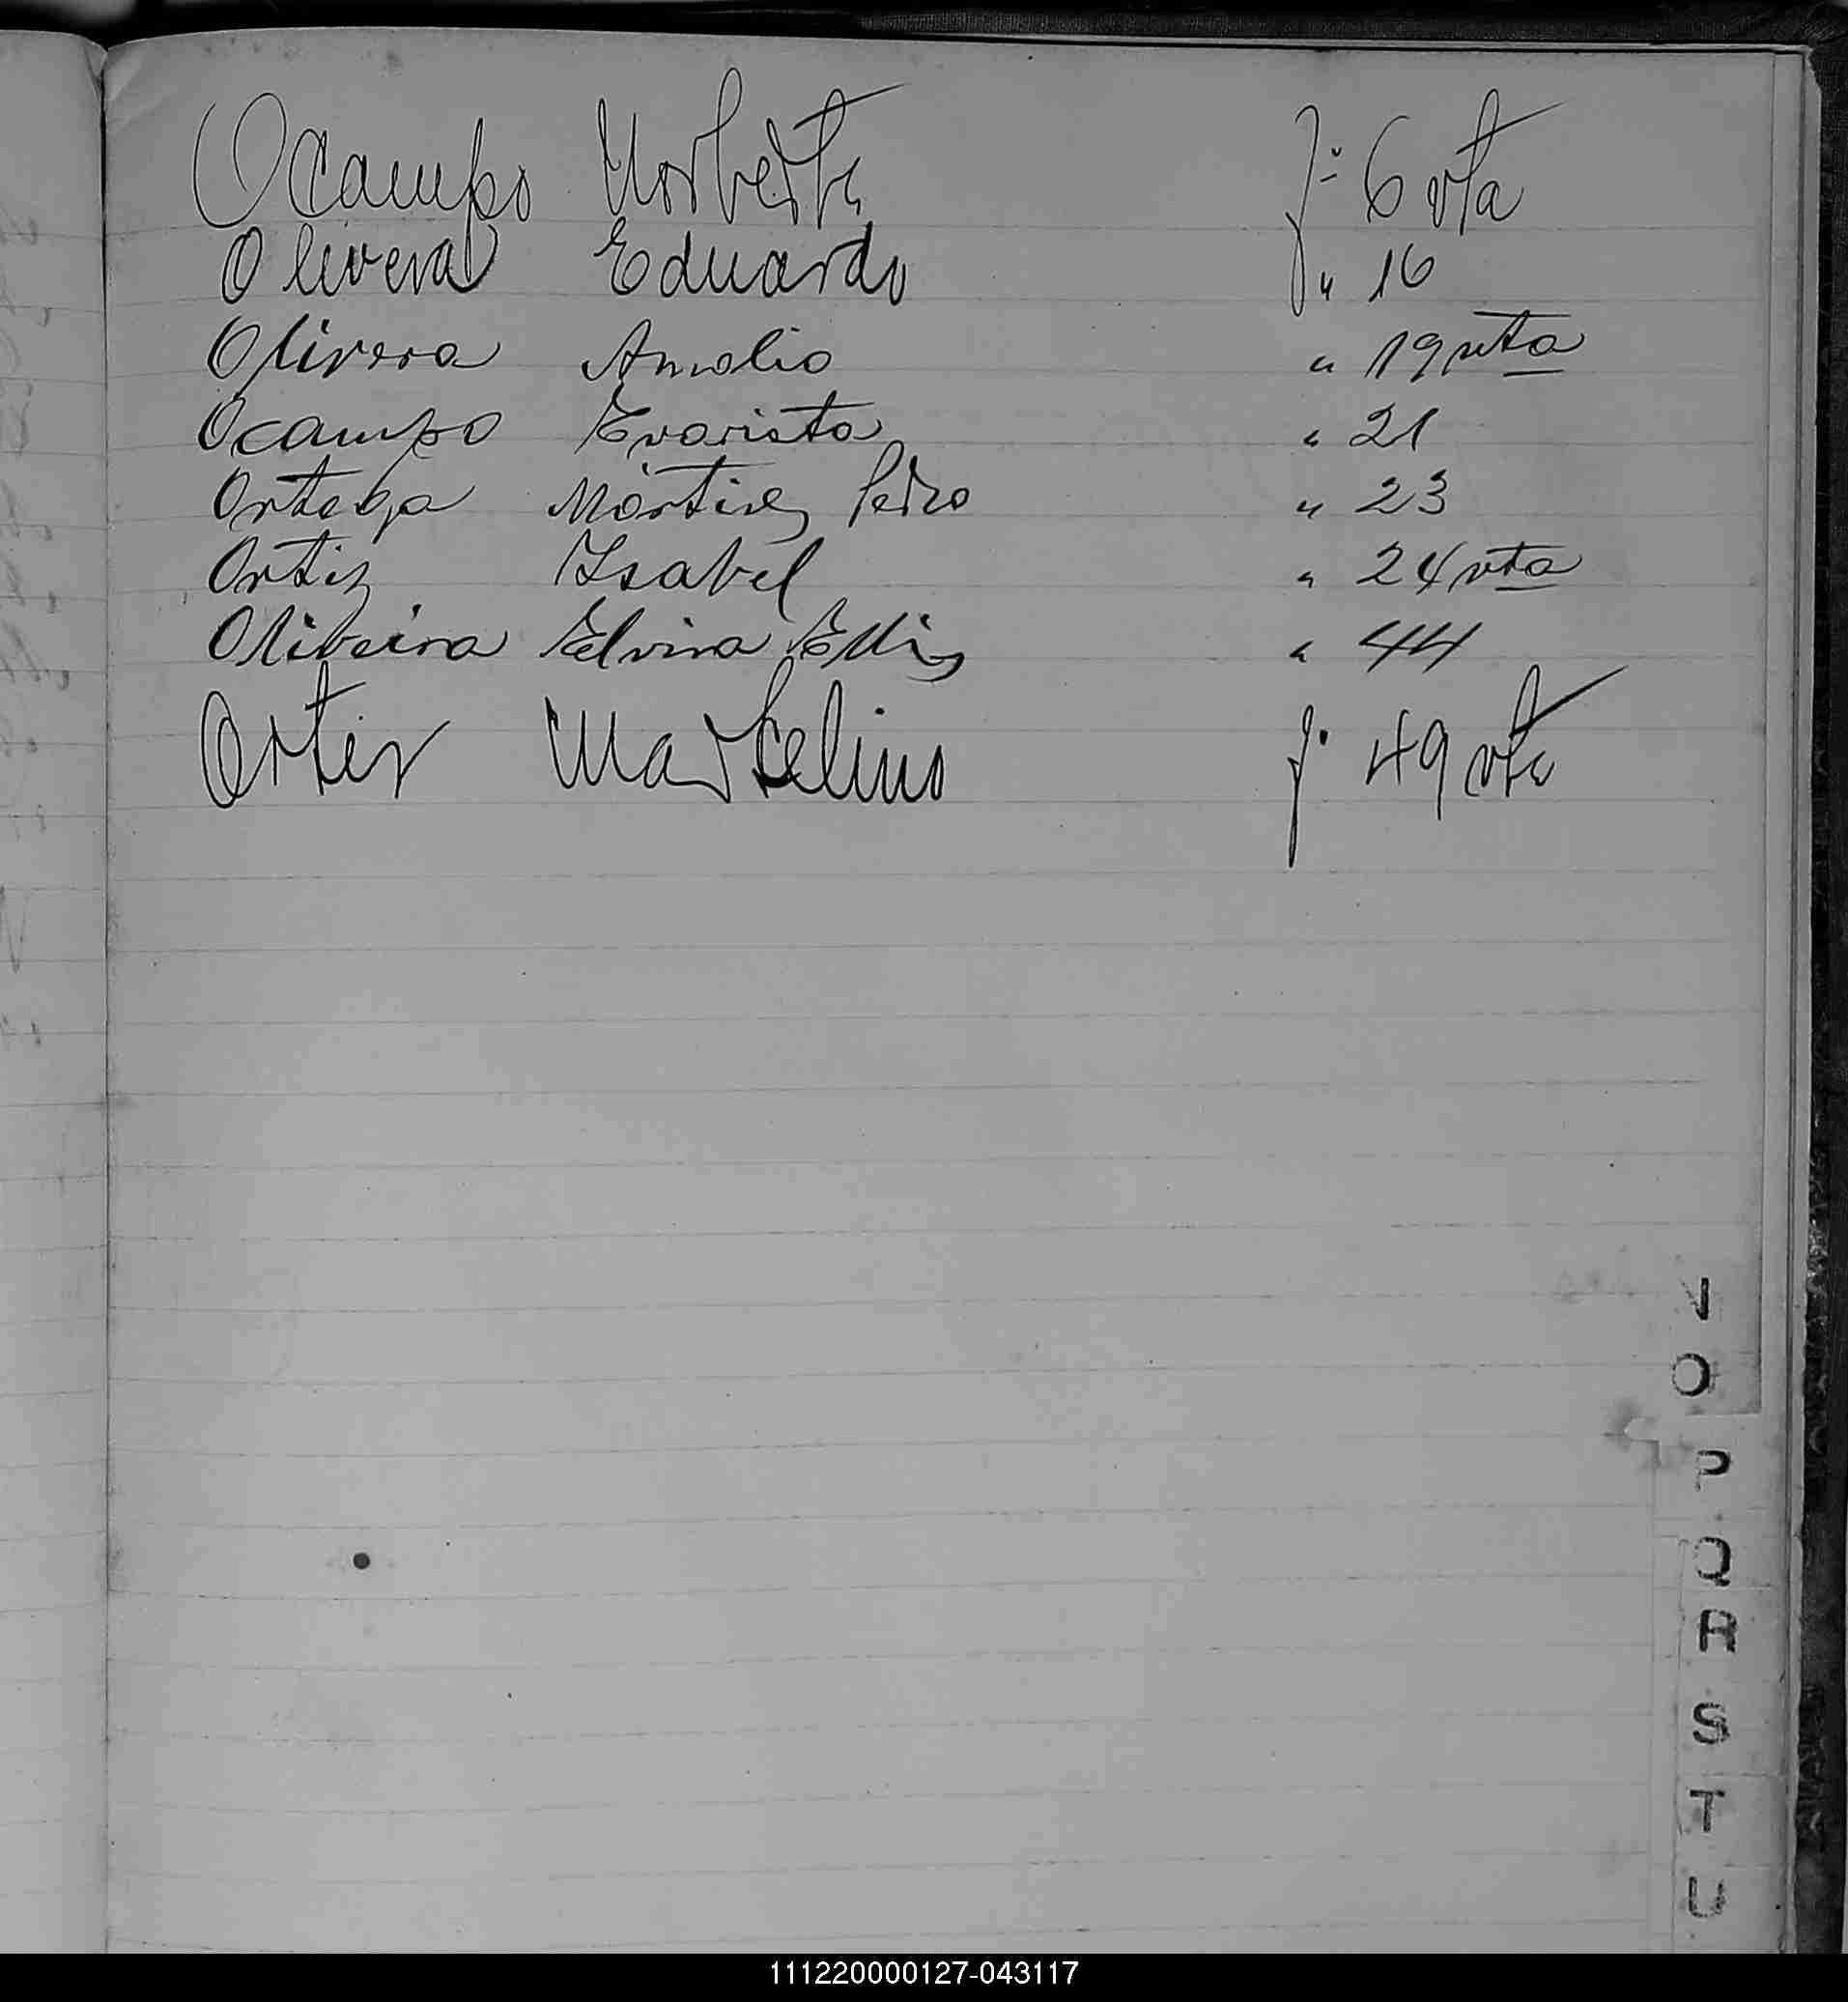 Ocampo Norberta fº 6 vta
Olivera Eduardo " 16
Olivera Amalia " 19 vta
Ocampo Evarista " 21
Ortega Martínez Pedro " 23
Ortiz Isabel " 24 vta
Oliveira Elvira " 44
Ortiz Marcelino f. 49 vta
N
O
P
Q
R
S
T
U
111220000127-043117